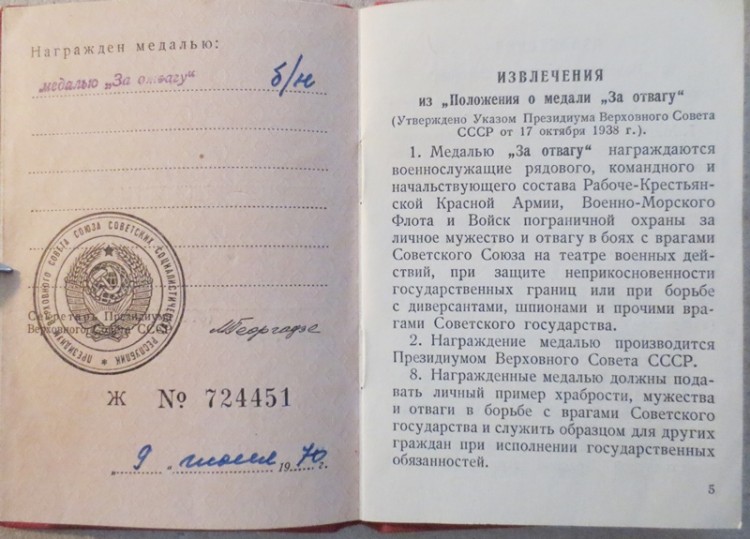 Награжден медалью:
медалью „За отвагу“ б/н
ПРЕЗИДИУМ ВЕРХОВНОГО СОВЕТА СОЮЗА СОВЕТСКИХ СОЦИАЛИСТИЧЕСКИХ РЕСПУБЛИК
Секретарь Президиума
Верховного Совета СССР МГеоргадзе
Ж № 724451
9 июня 1970 г.
ИЗВЛЕЧЕНИЯ
из „Положения о медали „За отвагу“
(Утверждено Указом Президиума Верховного Совета
СССР от 17 октября 1938 г.).
1. Медалью „За отвагу“ награждаются
военнослужащие рядового, командного и
начальствующего состава Рабоче-Крестьян-
ской Красной Армии, Военно-Морского
Флота и Войск пограничной охраны за
личное мужество и отвагу в боях с врагами
Советского Союза на театре военных дей-
ствий, при защите неприкосновенности
государственных границ или при борьбе
с диверсантами, шпионами и прочими вра-
гами Советского государства.
2. Награждение медалью производится
Президиумом Верховного Совета СССР.
8. Награжденные медалью должны пода-
вать личный пример храбрости, мужества
и отваги в борьбе с врагами Советского
государства и служить образцом для других
граждан при исполнении государственных
обязанностей.
5